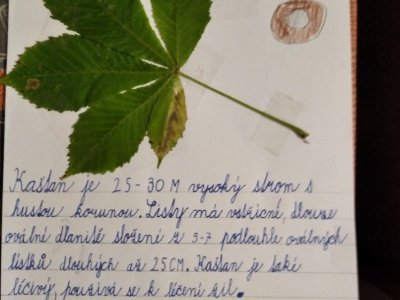 Kaštan je 25-30 M vysoký strom s
hustou korunou. Listy má vstřícné, dlouze
oválné dlanitě složené z 5-7 podlouhle oválných
lístků dlouhých až 25CM. Kaštan je také
léčivý, používá se k léčení žil.